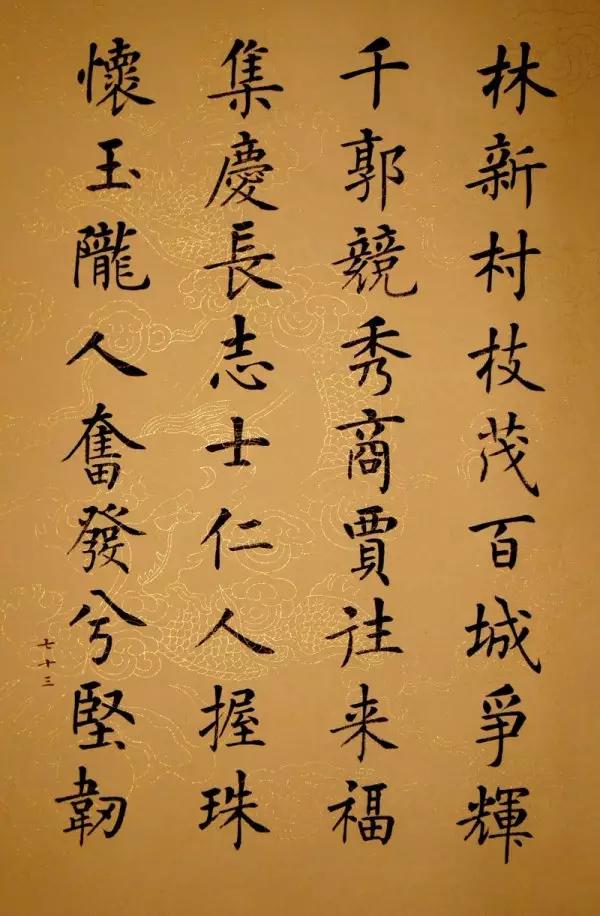 林新村枝茂百城爭輝
千郭競秀商賈往来福
集慶長志士仁人握珠
懷玉隴人奮發兮堅韌
七十三